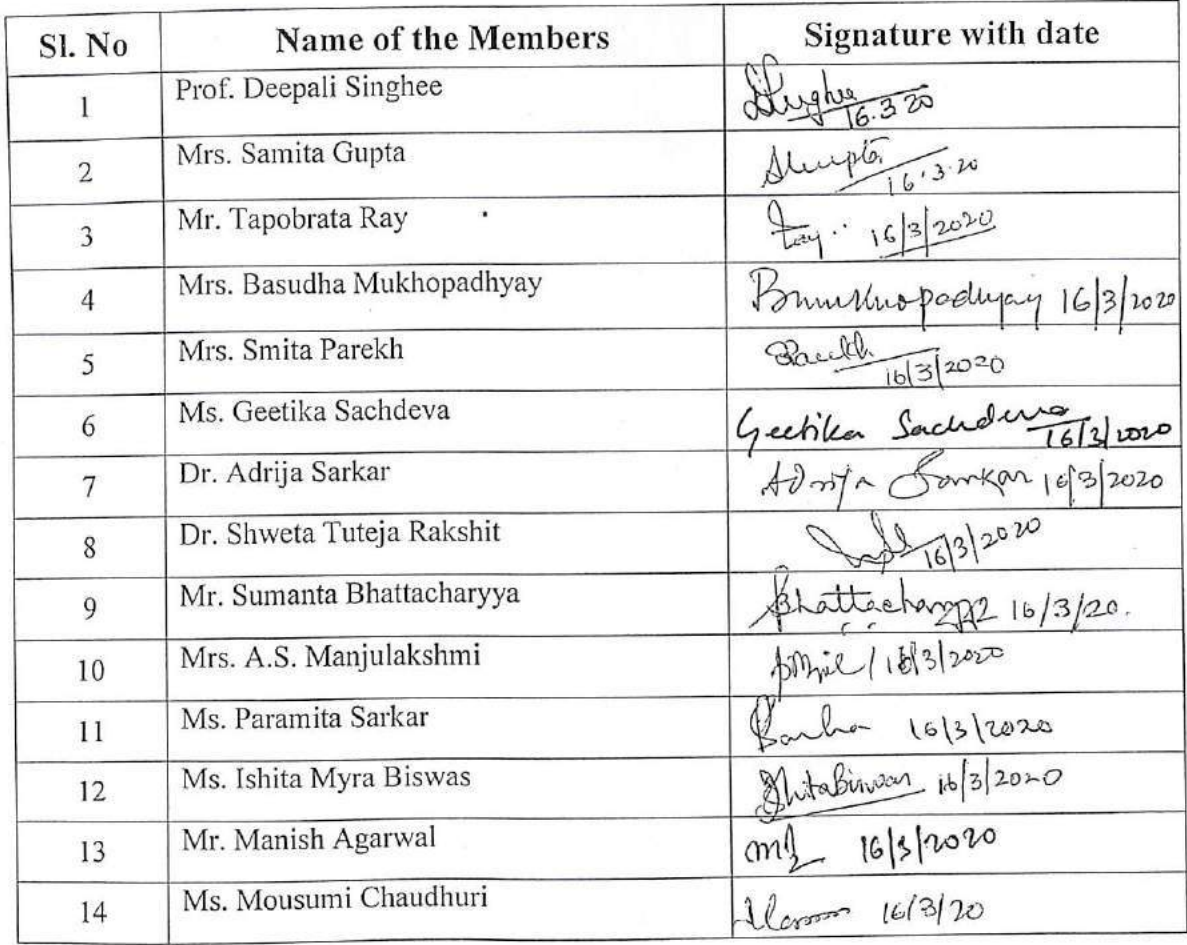 Sl. No Name of the Members Signature with date
1 Prof. Deepali Singhee 16.3.20
2 Mrs. Samita Gupta 16.3.20
3 Mr. Tapobrata Ray 16/3/2020
4 Mrs. Basudha Mukhopadhyay Bmukhopadhyay 16/3/2020
5 Mrs. Smita Parekh 16/3/2020
6 Ms. Geetika Sachdeva Geetika Sachdeva 16/3/2020
7 Dr. Adrija Sarkar Adrija Sarkar 16/3/2020
8 Dr. Shweta Tuteja Rakshit 16/3/2020
9 Mr. Sumanta Bhattacharyya 16/3/20.
10 Mrs. A.S. Manjulakshmi 16/3/2020
11 Ms. Paramita Sarkar 16/3/2020
12 Ms. Ishita Myra Biswas IshitaBiswas 16/3/2020
13 Mr. Manish Agarwal 16/3/2020
14 Ms. Mousumi Chaudhuri 16/3/20